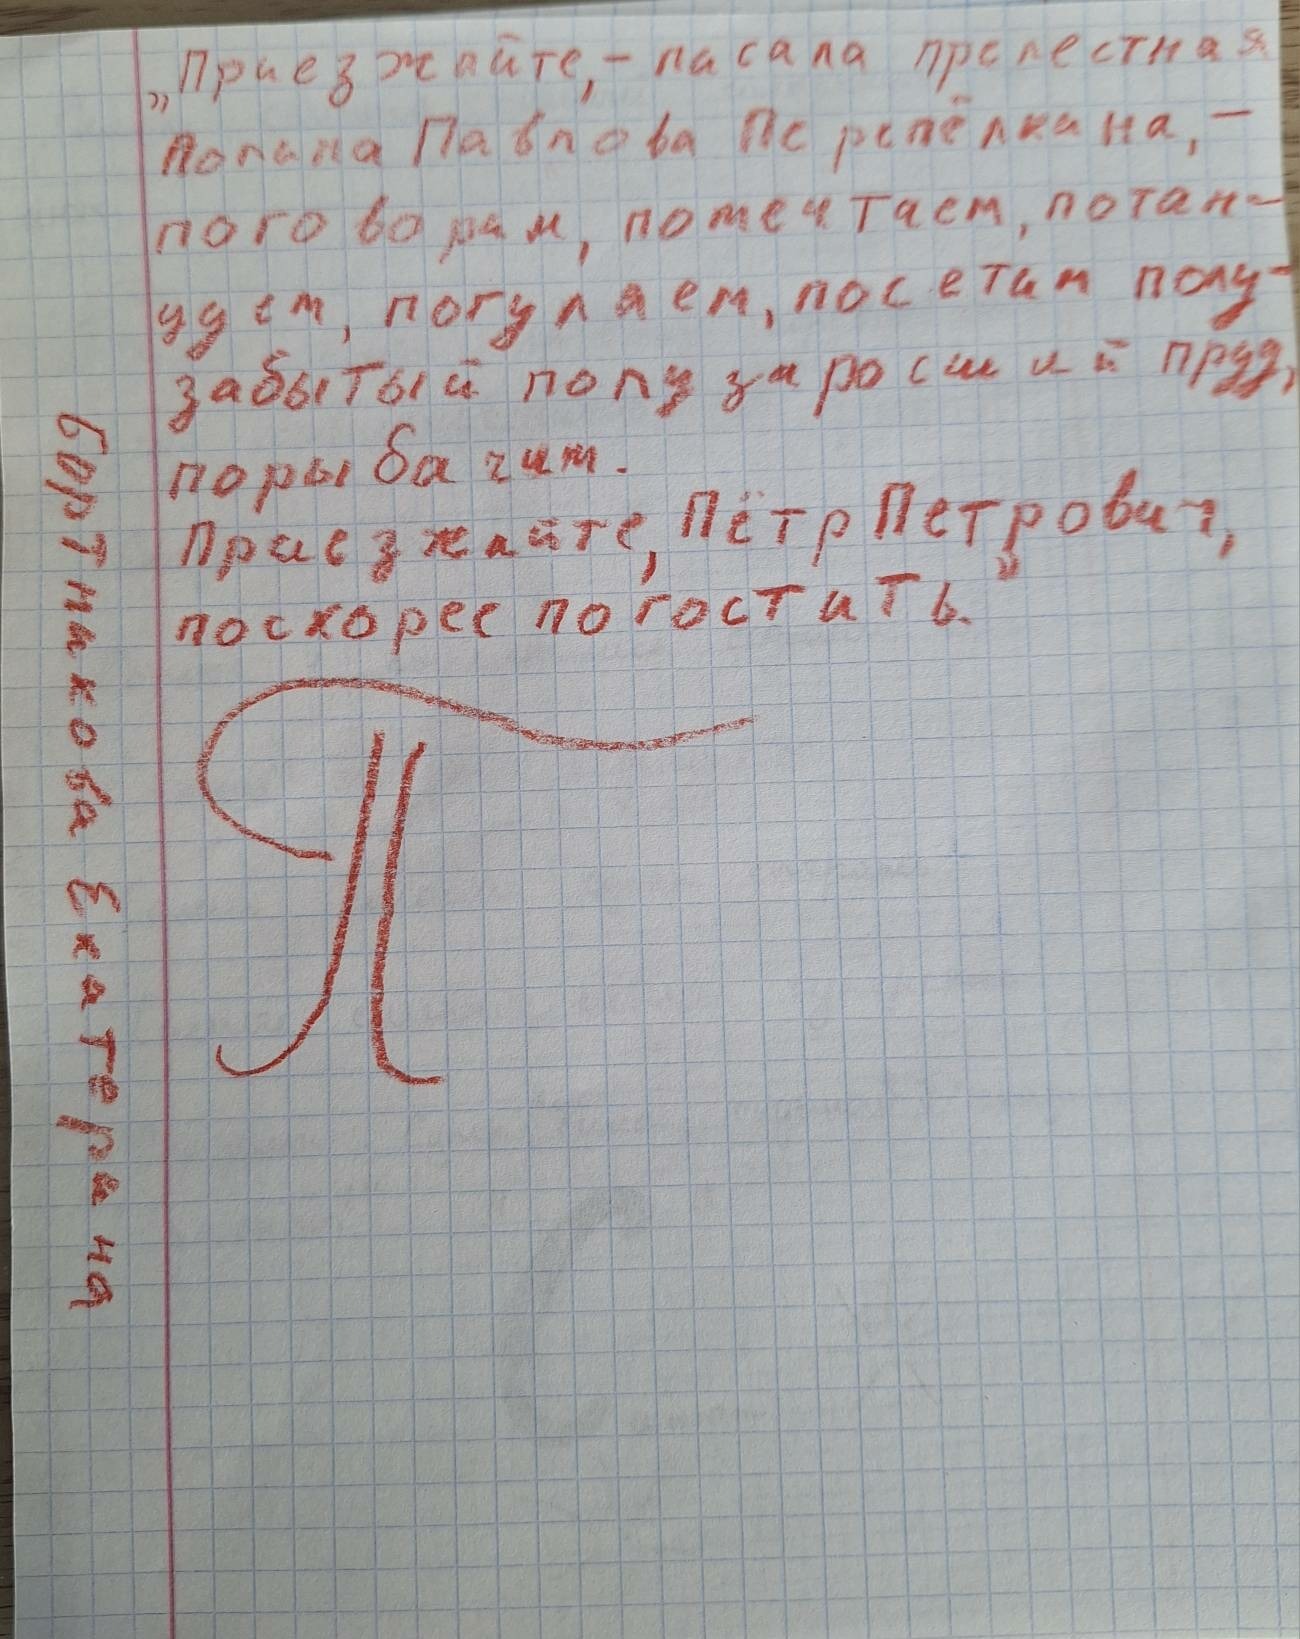 „Приезжайте, - писала прелестная
Полина Павлова Перепёлкина, -
поговорим, помечтаем, потан-
цуем, погуляем, посетим полу-
забытый полузаросший пруд,
порыбачим.
Приезжайте, Пётр Петрович,
поскорее погостить."
П
Бортникова Екатерина